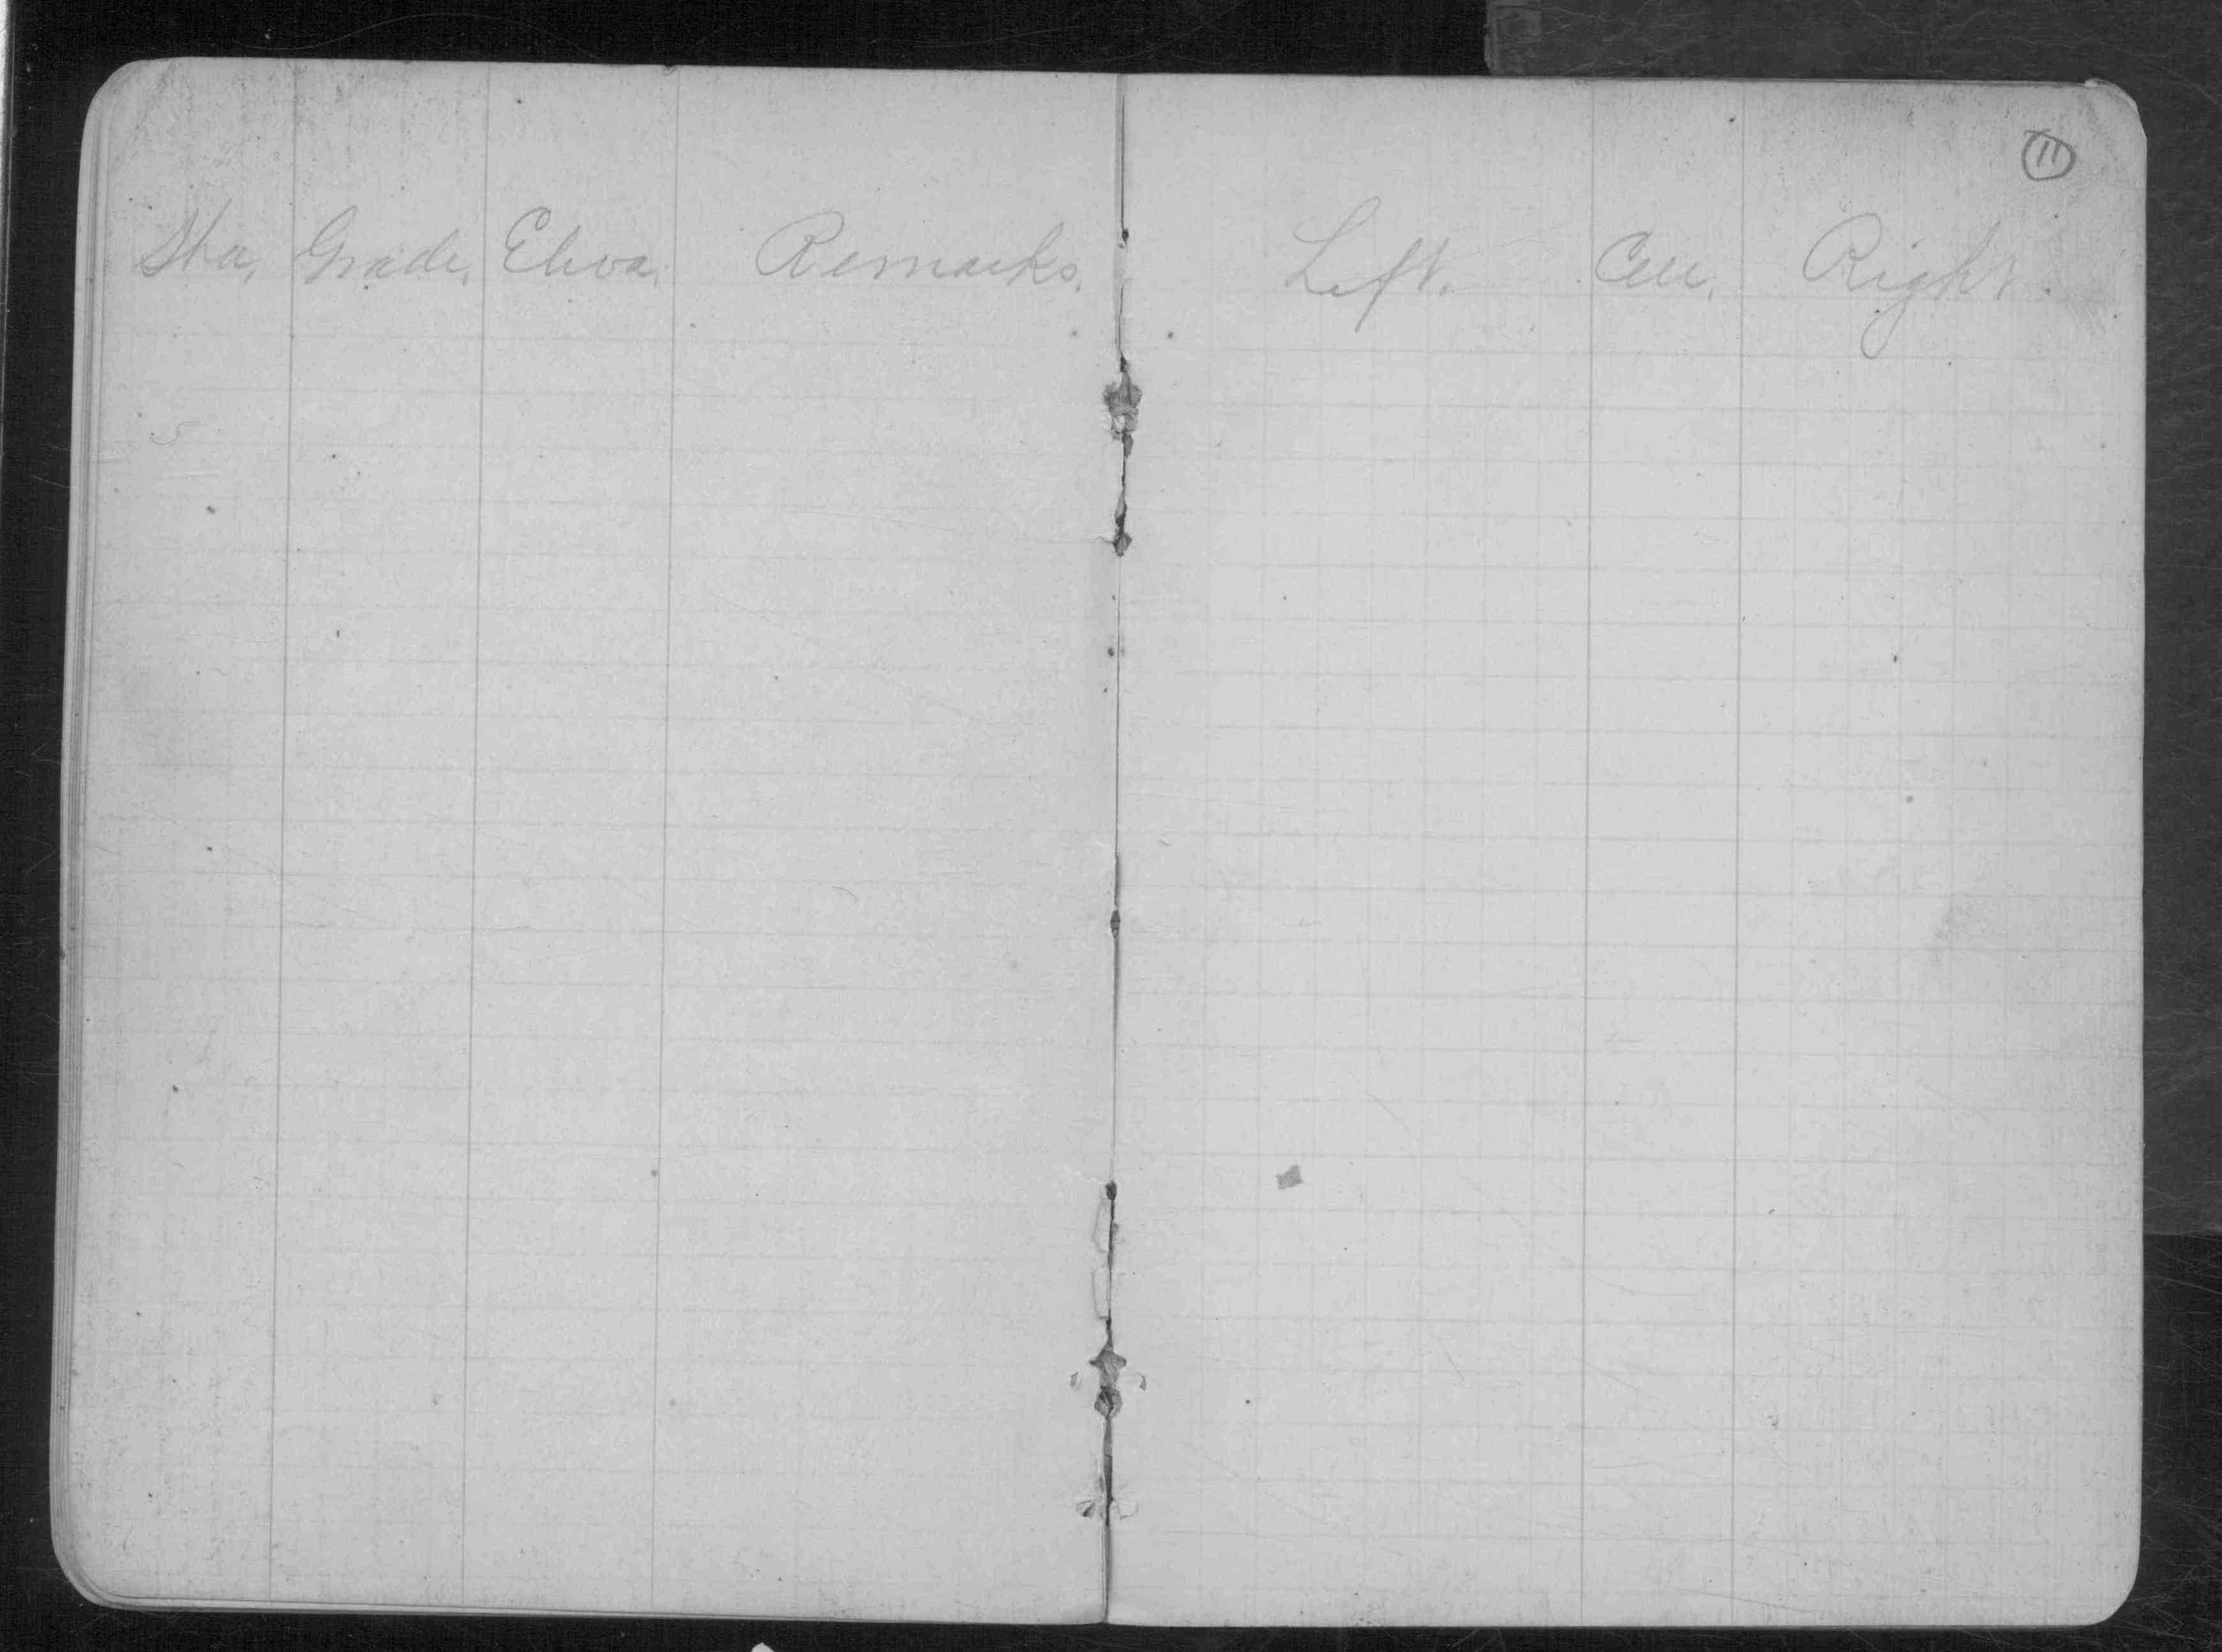 11
Sta. Grade. Eleva. Remarks. Left. Cen. Right.